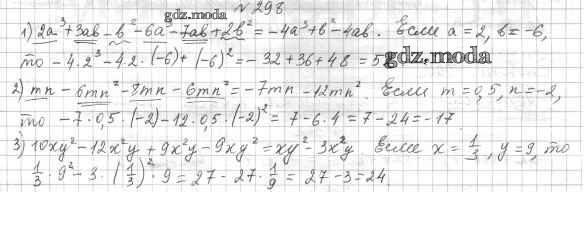 № 298
gdz.moda
1) 2a³+3ab-b²-6a³-7ab+2b²=-4a³+b²-4ab. Если a=2, b=-6,
то -4·2³-4·2·(-6)+(-6)²=-32+36+48=5
gdz.moda
2) mn-6mn²-8mn-6mn²=-7mn-12mn². Если m=0,5, n=-2,
то -7·0,5·(-2)-12·0,5·(-2)²=7-6·4=7-24=-17
3) 10xy²-12x²y+9x²y-9xy²=xy²-3x²y. Если x=1/3, y=9, то
1/3·9²-3·(1/3)²·9=27-27·1/9=27-3=24